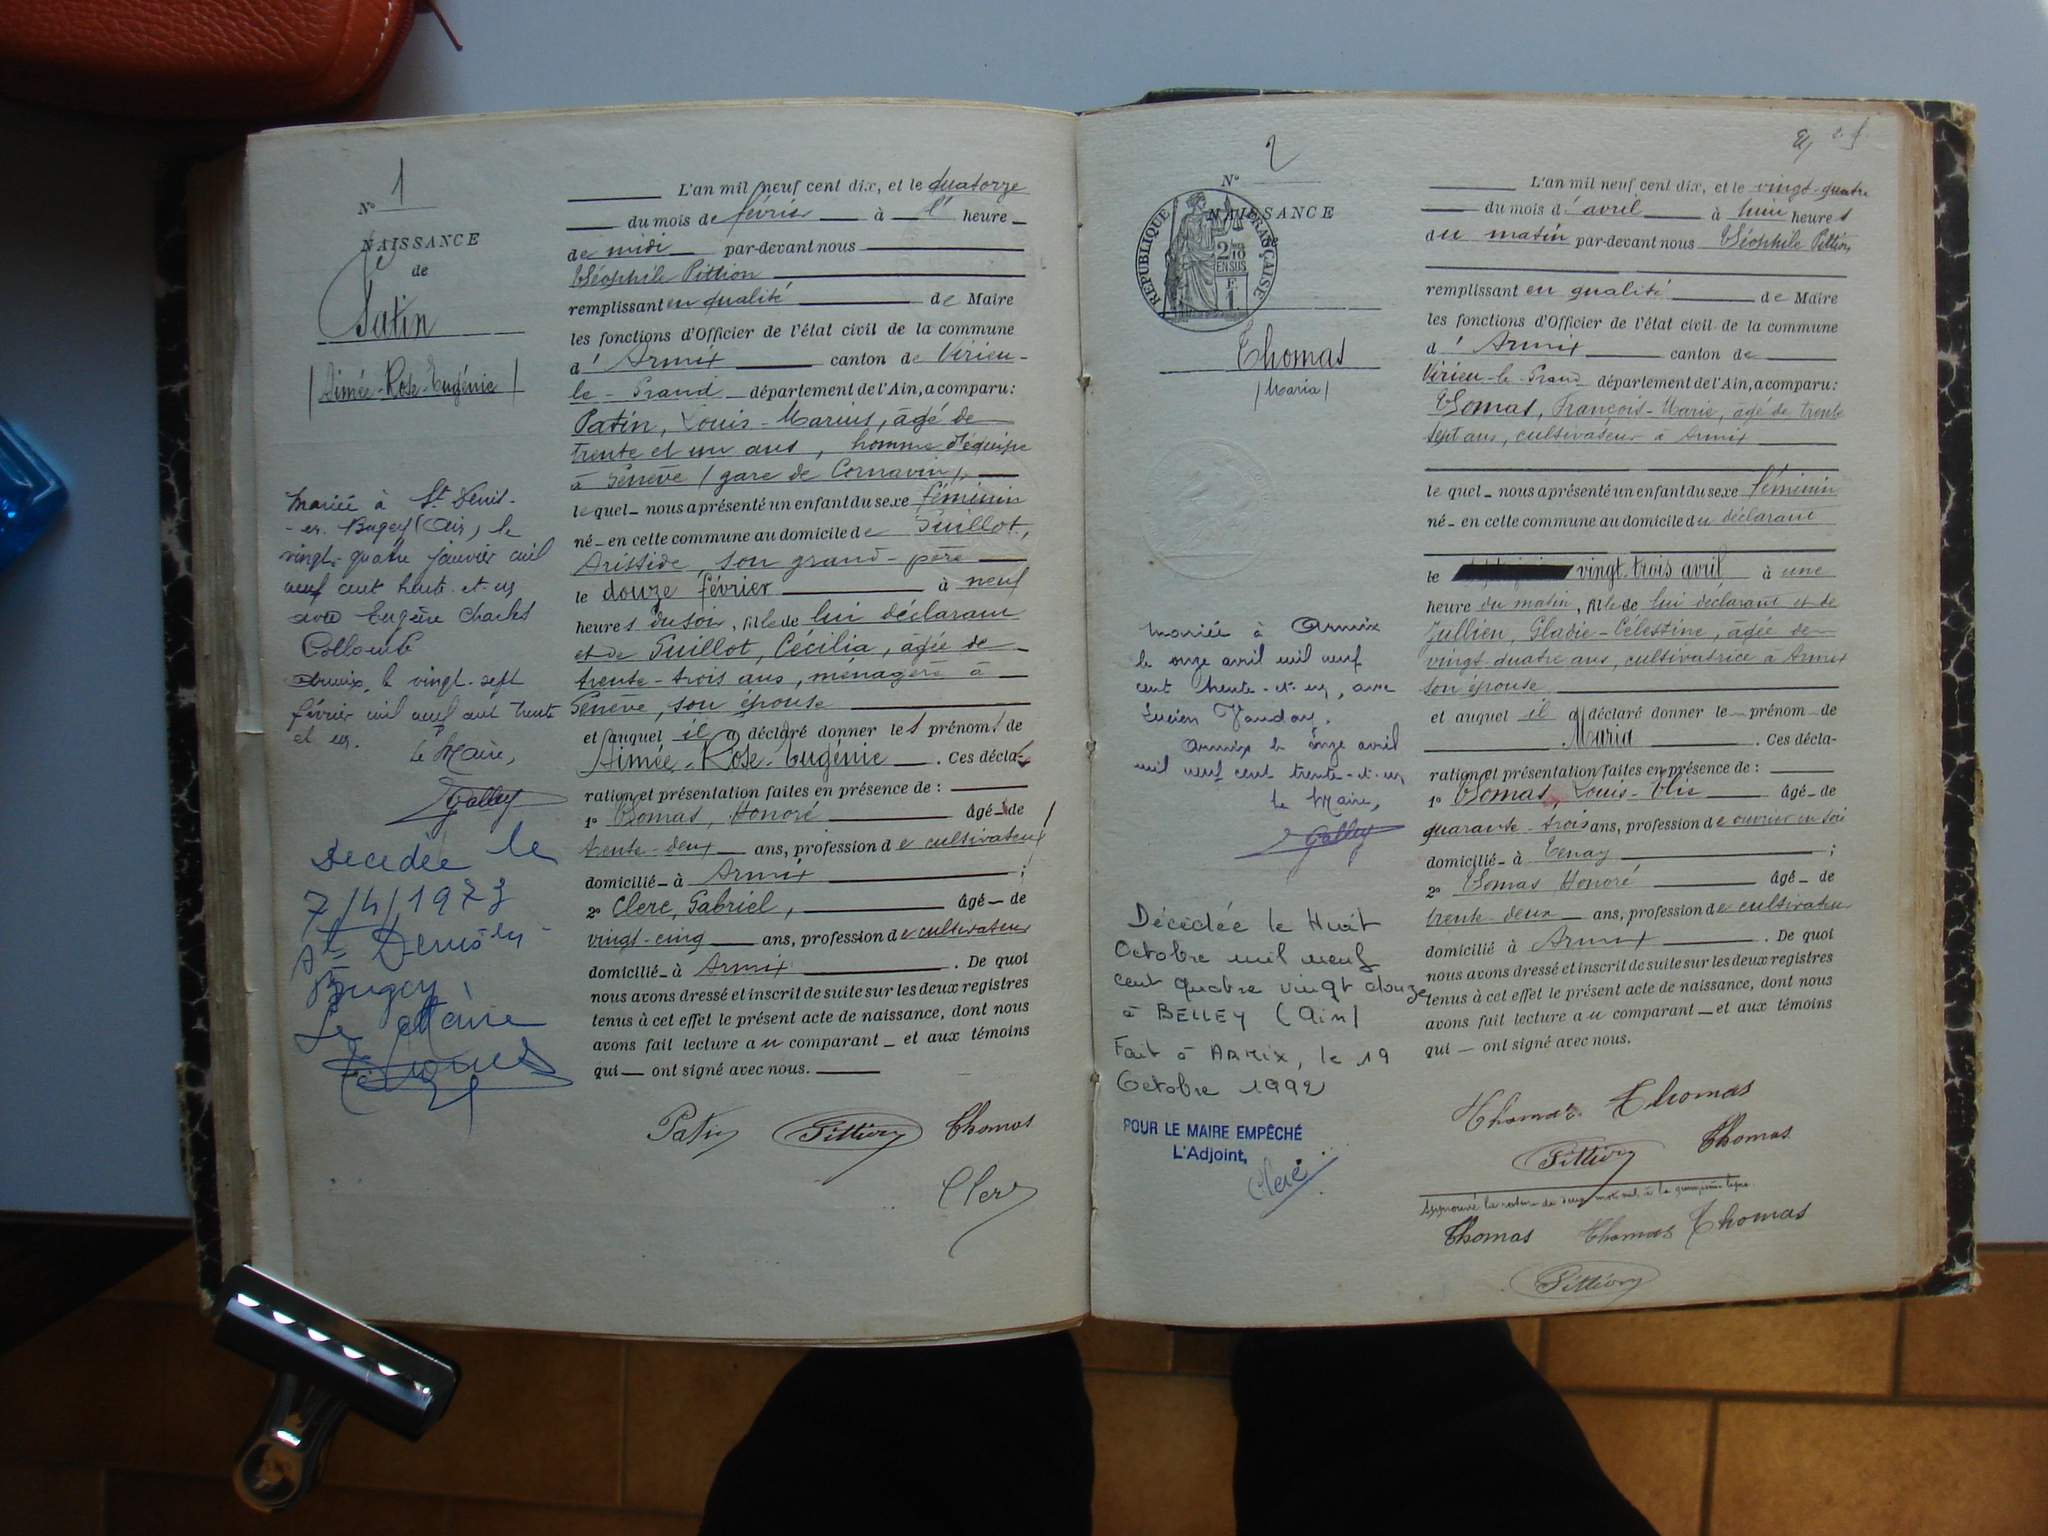 N° 1
NAISSANCE
de
Patin
/ Aimée-Rose-Eugénie /
mariée à St Denis-
-en-Bugey (Ain) le
vingt-quatre janvier mil
neuf cent trente-et-un
avec Eugène Charles
Collomb
Armix, le vingt-sept
février mil neuf cent trente
et un.
Le Maire,
Galley
Décédée le
7/4/1973
St Denis en
Bugey
Le Maire
L'an mil neuf cent dix, et le quatorze
du mois de février à l' heure
de midi par-devant nous
Théophile Pittion
remplissant en qualité de Maire
les fonctions d'Officier de l'état civil de la commune
d' Armix canton de Virieu-
le-Grand département de l'Ain, a comparu :
Patin, Louis-Marius, âgé de
trente et un ans, homme d'équipe
à Genève (gare de Cornavin),
lequel nous a présenté un enfant du sexe féminin
né en cette commune au domicile de Guillot,
Aristide, son grand-père
le douze février à neuf
heures du soir, fille de lui déclarant
et de Guillot, Cécilia, âgée de
trente-trois ans, ménagère à
Genève, son épouse
et auquel il a déclaré donner les prénoms de
Aimée-Rose-Eugénie. Ces décla-
ration et présentation faites en présence de :
1° Thomas, Honoré âgé de
trente-deux ans, profession de cultivateur
domicilié à Armix ;
2° Clerc, Gabriel, âgé de
vingt-cinq ans, profession de cultivateur
domicilié à Armix. De quoi
nous avons dressé et inscrit de suite sur les deux registres
tenus à cet effet le présent acte de naissance, dont nous
avons fait lecture au comparant et aux témoins
qui ont signé avec nous.
Patin Pittion Thomas
Clerc
N° 2
NAISSANCE
RÉPUBLIQUE FRANÇAISE
2/10
EN SUS
F
1
Thomas
/ Maria /
mariée à Armix
le onze avril mil neuf
cent trente-et-un, avec
Lucien Vauday.
Armix le onze avril
mil neuf cent trente-et-un
Le Maire,
Galley
Décédée le Huit
Octobre mil neuf
cent quatre vingt douze
à BELLEY (Ain)
Fait à ARMIX, le 19
Octobre 1992
POUR LE MAIRE EMPÊCHÉ
L'Adjoint,
Clerc
L'an mil neuf cent dix, et le vingt-quatre
du mois d'avril à huit heures
du matin par-devant nous Théophile Pittion
remplissant en qualité de Maire
les fonctions d'Officier de l'état civil de la commune
d' Armix canton de
Virieu-le-Grand département de l'Ain, a comparu :
Thomas, François-Marie, âgé de trente
sept ans, cultivateur à Armix
lequel nous a présenté un enfant du sexe féminin
né en cette commune au domicile du déclarant
le vingt-trois avril à une
heure du matin, fille de lui déclarant et de
Jullien, Gladie-Célestine, âgée de
vingt-quatre ans, cultivatrice à Armix
son épouse
et auquel il a déclaré donner le prénom de
Maria. Ces décla-
ration et présentation faites en présence de :
1° Thomas, Louis-Elie âgé de
quarante-trois ans, profession de ouvrier en soie
domicilié à Tenay ;
2° Thomas Honoré âgé de
trente-deux ans, profession de cultivateur
domicilié à Armix. De quoi
nous avons dressé et inscrit de suite sur les deux registres
tenus à cet effet le présent acte de naissance, dont nous
avons fait lecture au comparant et aux témoins
qui ont signé avec nous.
Thomas Thomas
Pittion Thomas
Approuvé la rature de deux mots nuls à la quinzième ligne
Thomas Thomas Thomas
Pittion